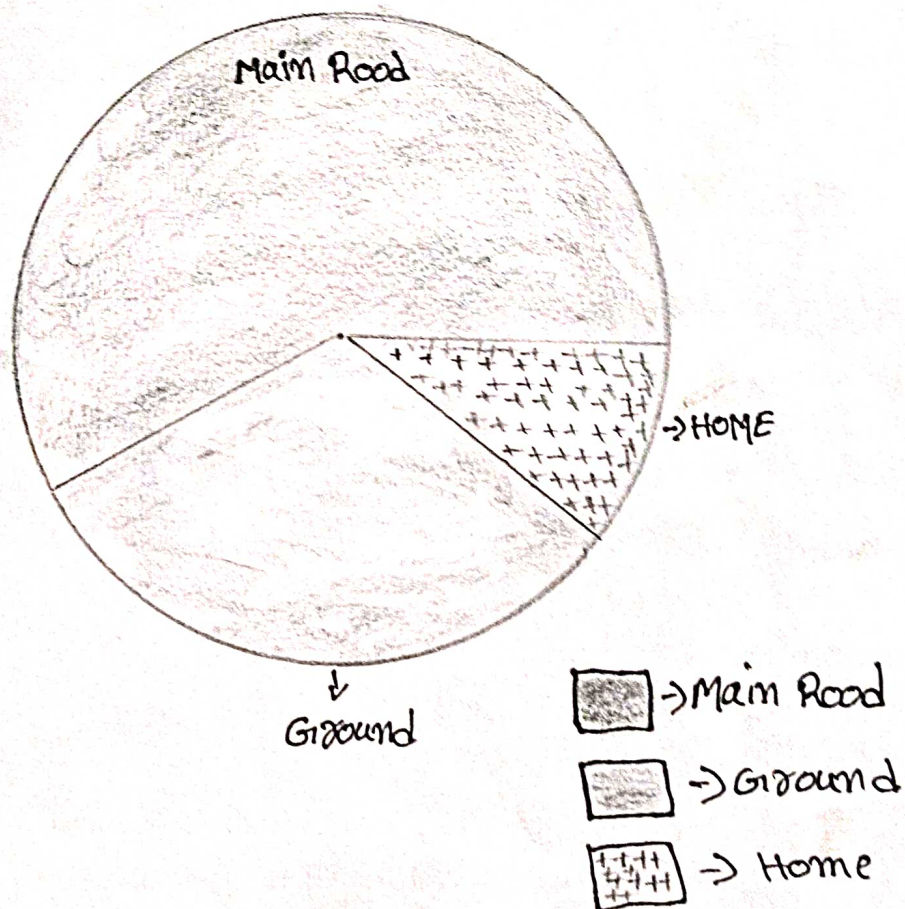 Main Road
→ HOME
↓
Ground
→ Main Road
→ Ground
→ Home